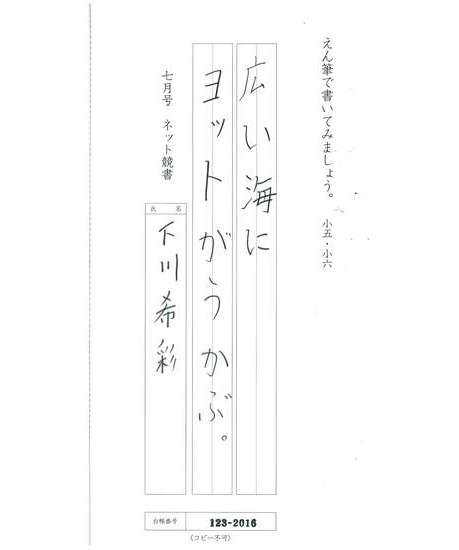 えん筆で書いてみましょう。 小五・小六
広い海に
ヨットがうかぶ。
七月号 ネット競書
氏名
下川希彩
台帳番号 123-2016
(コピー不可)